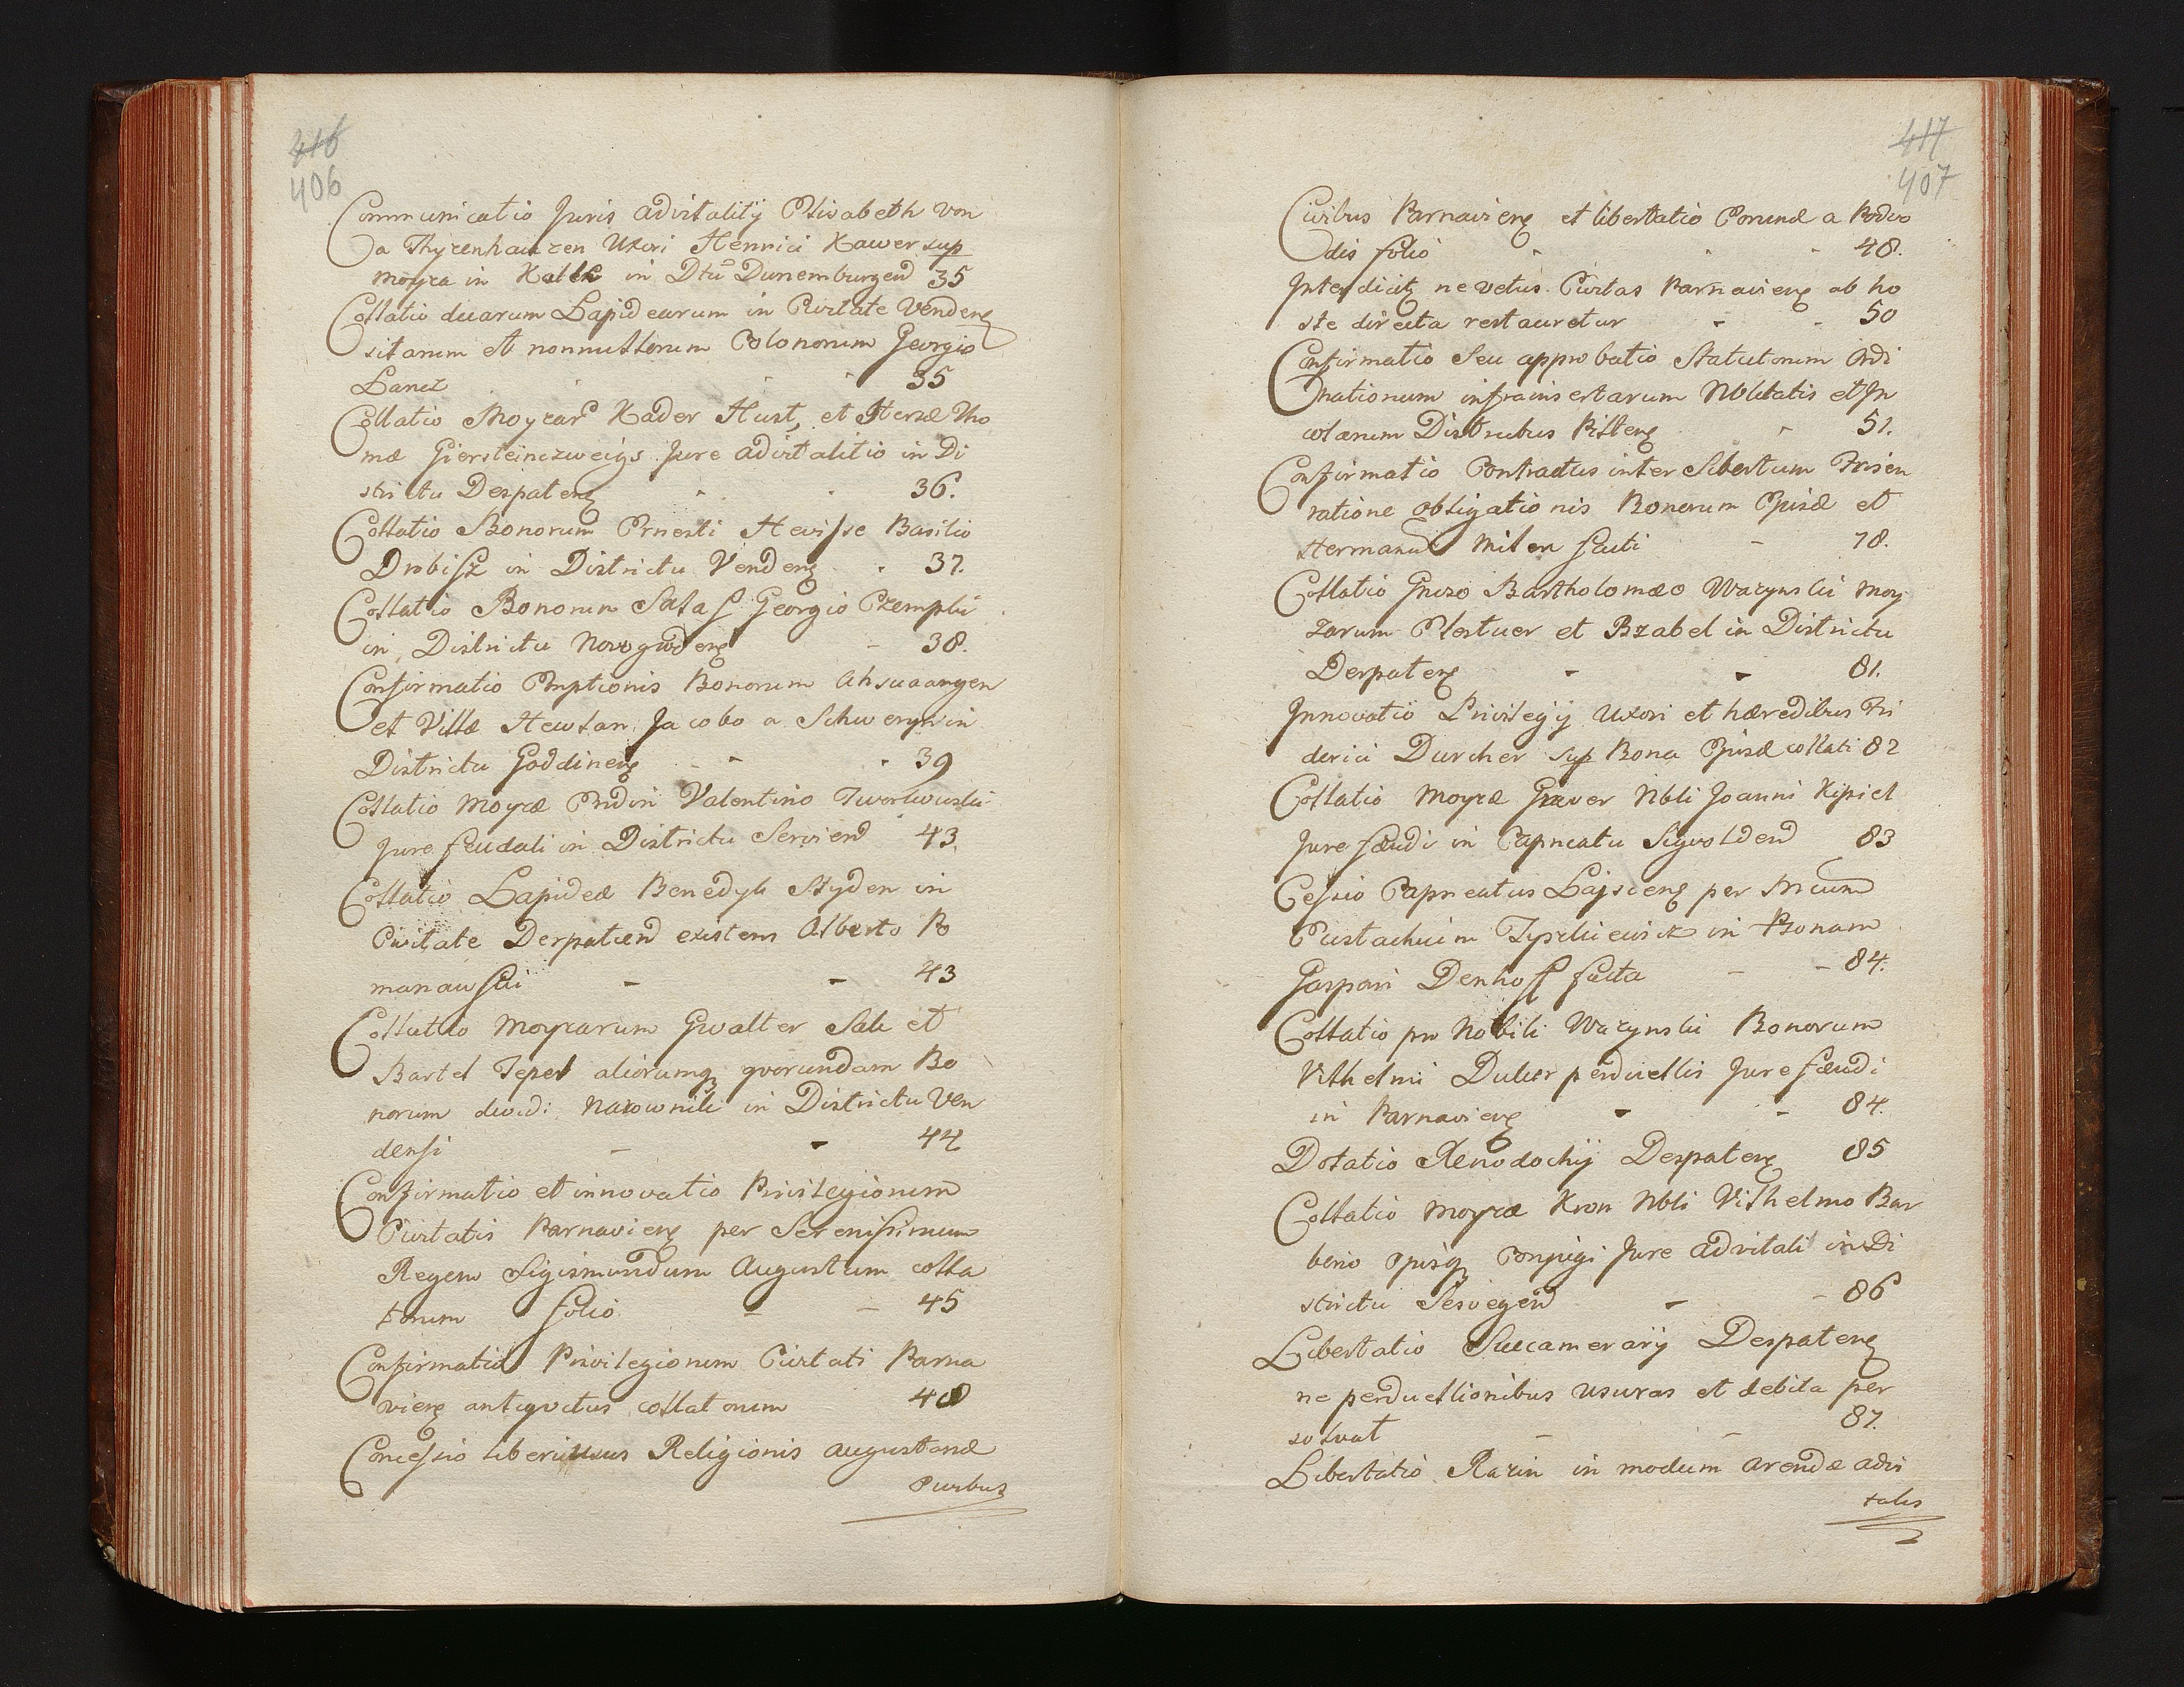 416
406
Communicatio Juris advitalitÿ Elisabeth von
a Thyzenhauzen Uxori Henrici Kawer sup
moyza in Kalle in Dtu Dunemburgen 35
Collatio duarum Lapidearum in Civitate Venden
sitarum et nonnullorum Colonorum Georgio
Lanez 35
Collatio Moyzar Kader Hust, et Sterzæ Tho
mæ Giersteinczweigs Jure advitalitio in Di
strictu Derpaten 36.
Collatio Bonorum Ernesti Hewisse Basilio
Drobisz in Districtu Venden 37.
Collatio Bonorum Salaf Georgio Czemplii
in Districtu Novogroden 38.
Confirmatio Emptionis Bonorum Ahsuaangen
et Villæ Hewlan Jacobo a Schweryn in
Districtu Goddinen 39
Collatio Moyzæ Endiri Valentino Tworkwuskii
Jure feudali in Districtu Servien 43.
Collatio Lapideæ Benedyk Styden in
Civitate Derpatien existens Alberto Ro
manauskii 43
Collatio Moyzarum Gwalter Sale et
Bartel Tepel aliorumq quorundam Bo
norum dividi Naxownik in Districtu Ven
densi 44
Confirmatio et innovatio Privilegiorum
Civitatis Parnavien per Serenissimum
Regem Sigismundum Augustum colla
torum folio 45
Confirmatio Privilegiorum Civitati Parna
vien antiqvitus collatorum 48
Concessio liberi usus Religionis augustanæ
Civibus
417
407
Civibus Parnavien et libertatio Eorundæ a Podvo
dis folio 48.
Interdicit ne vetus Civitas Parnavien ab ho
ste directa restauretur 50
Confirmatio Seu approbatio Statutorum Ordi
nationum infrainsertarum Nblitatis et In
colarum Distribus Pilten 51.
Confirmatio Contractus inter Libertum Frisen
ratione obligationis Bonorum Ejusd et
Hermanu Miler facti 78.
Collatio Gnezo Bartholomæo Wazynskii Moy
zarum Elestuer et Bzabel in Districtu
Derpaten 81.
Innovatio Privilegÿ Uxori et hæredibus Fri
derici Durcher sup Bona Ejusd collati 82
Collatio Moyzæ Graver Nbli Joanni Kipiel
Jure fæudi in Capneatu Sigvolden 83
Cessio Capneatus Lajscen per Mcum
Eustachium Tyszkiewicz in Bonam
Gaspari Denhoff facta 84.
Collatio pro Nobili Wazynskii Bonorum
Vilhelmi Duker perduellis Jure fæudi
in Parnavien 84.
Dotatio Xenodochÿ Derpaten 85
Collatio Moyzæ Kron Nbli Vilhelmo Bar
berio Ejusq Conjugi Jure advitali in Di
strictu Sesvegen 86
Libertatio Succamerarÿ Derpaten
ne perduellionibus usuras et debita per
solvat 87.
Libertatio Razin in modum arendæ advi
talis